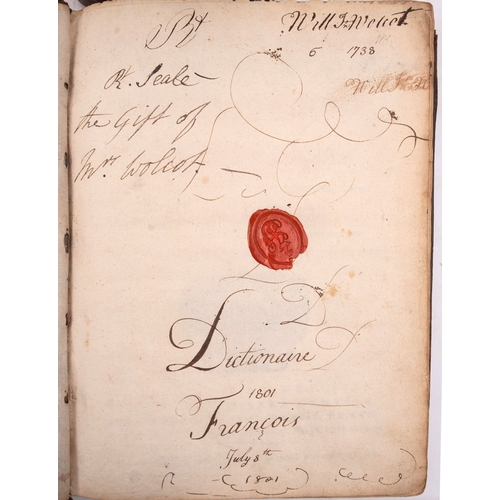 Rt
Will Fr Wolcot
6 1733
R. Seale
the Gift of
Mrs Wolcot
D
Dictionaire D
1801
François
July 8th
1801